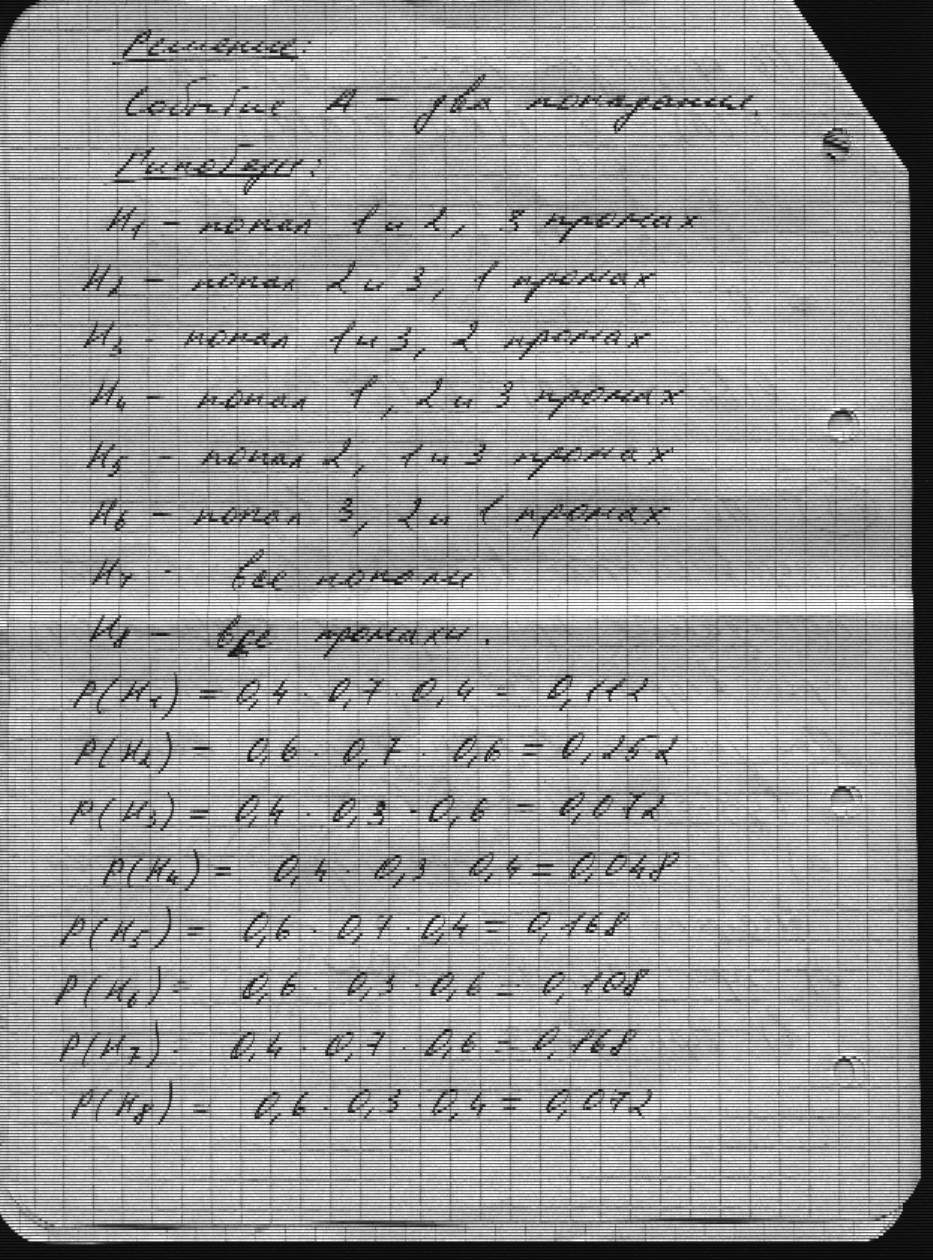 Решение:
Событие А – два попадания.
Гипотезы:
H1 – попал 1 и 2, 3 промах
H2 – попал 2 и 3, 1 промах
H3 - попал 1 и 3, 2 промах
H4 – попал 1, 2 и 3 промах
H5 – попал 2, 1 и 3 промах
H6 – попал 3, 2 и 1 промах
H7 - все попали
H8 – все промахи.
P(H1) = 0,4 · 0,7 · 0,4 = 0,112
P(H2) = 0,6 · 0,7 · 0,6 = 0,252
P(H3) = 0,4 · 0,3 · 0,6 = 0,072
P(H4) = 0,4 · 0,3 · 0,4 = 0,048
P(H5) = 0,6 · 0,7 · 0,4 = 0,168
P(H6) = 0,6 · 0,3 · 0,6 = 0,108
P(H7) = 0,4 · 0,7 · 0,6 = 0,168
P(H8) = 0,6 · 0,3 · 0,4 = 0,072